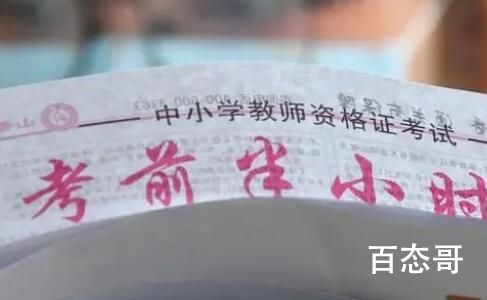 中小学教师资格证考试
考前半小时
百态哥